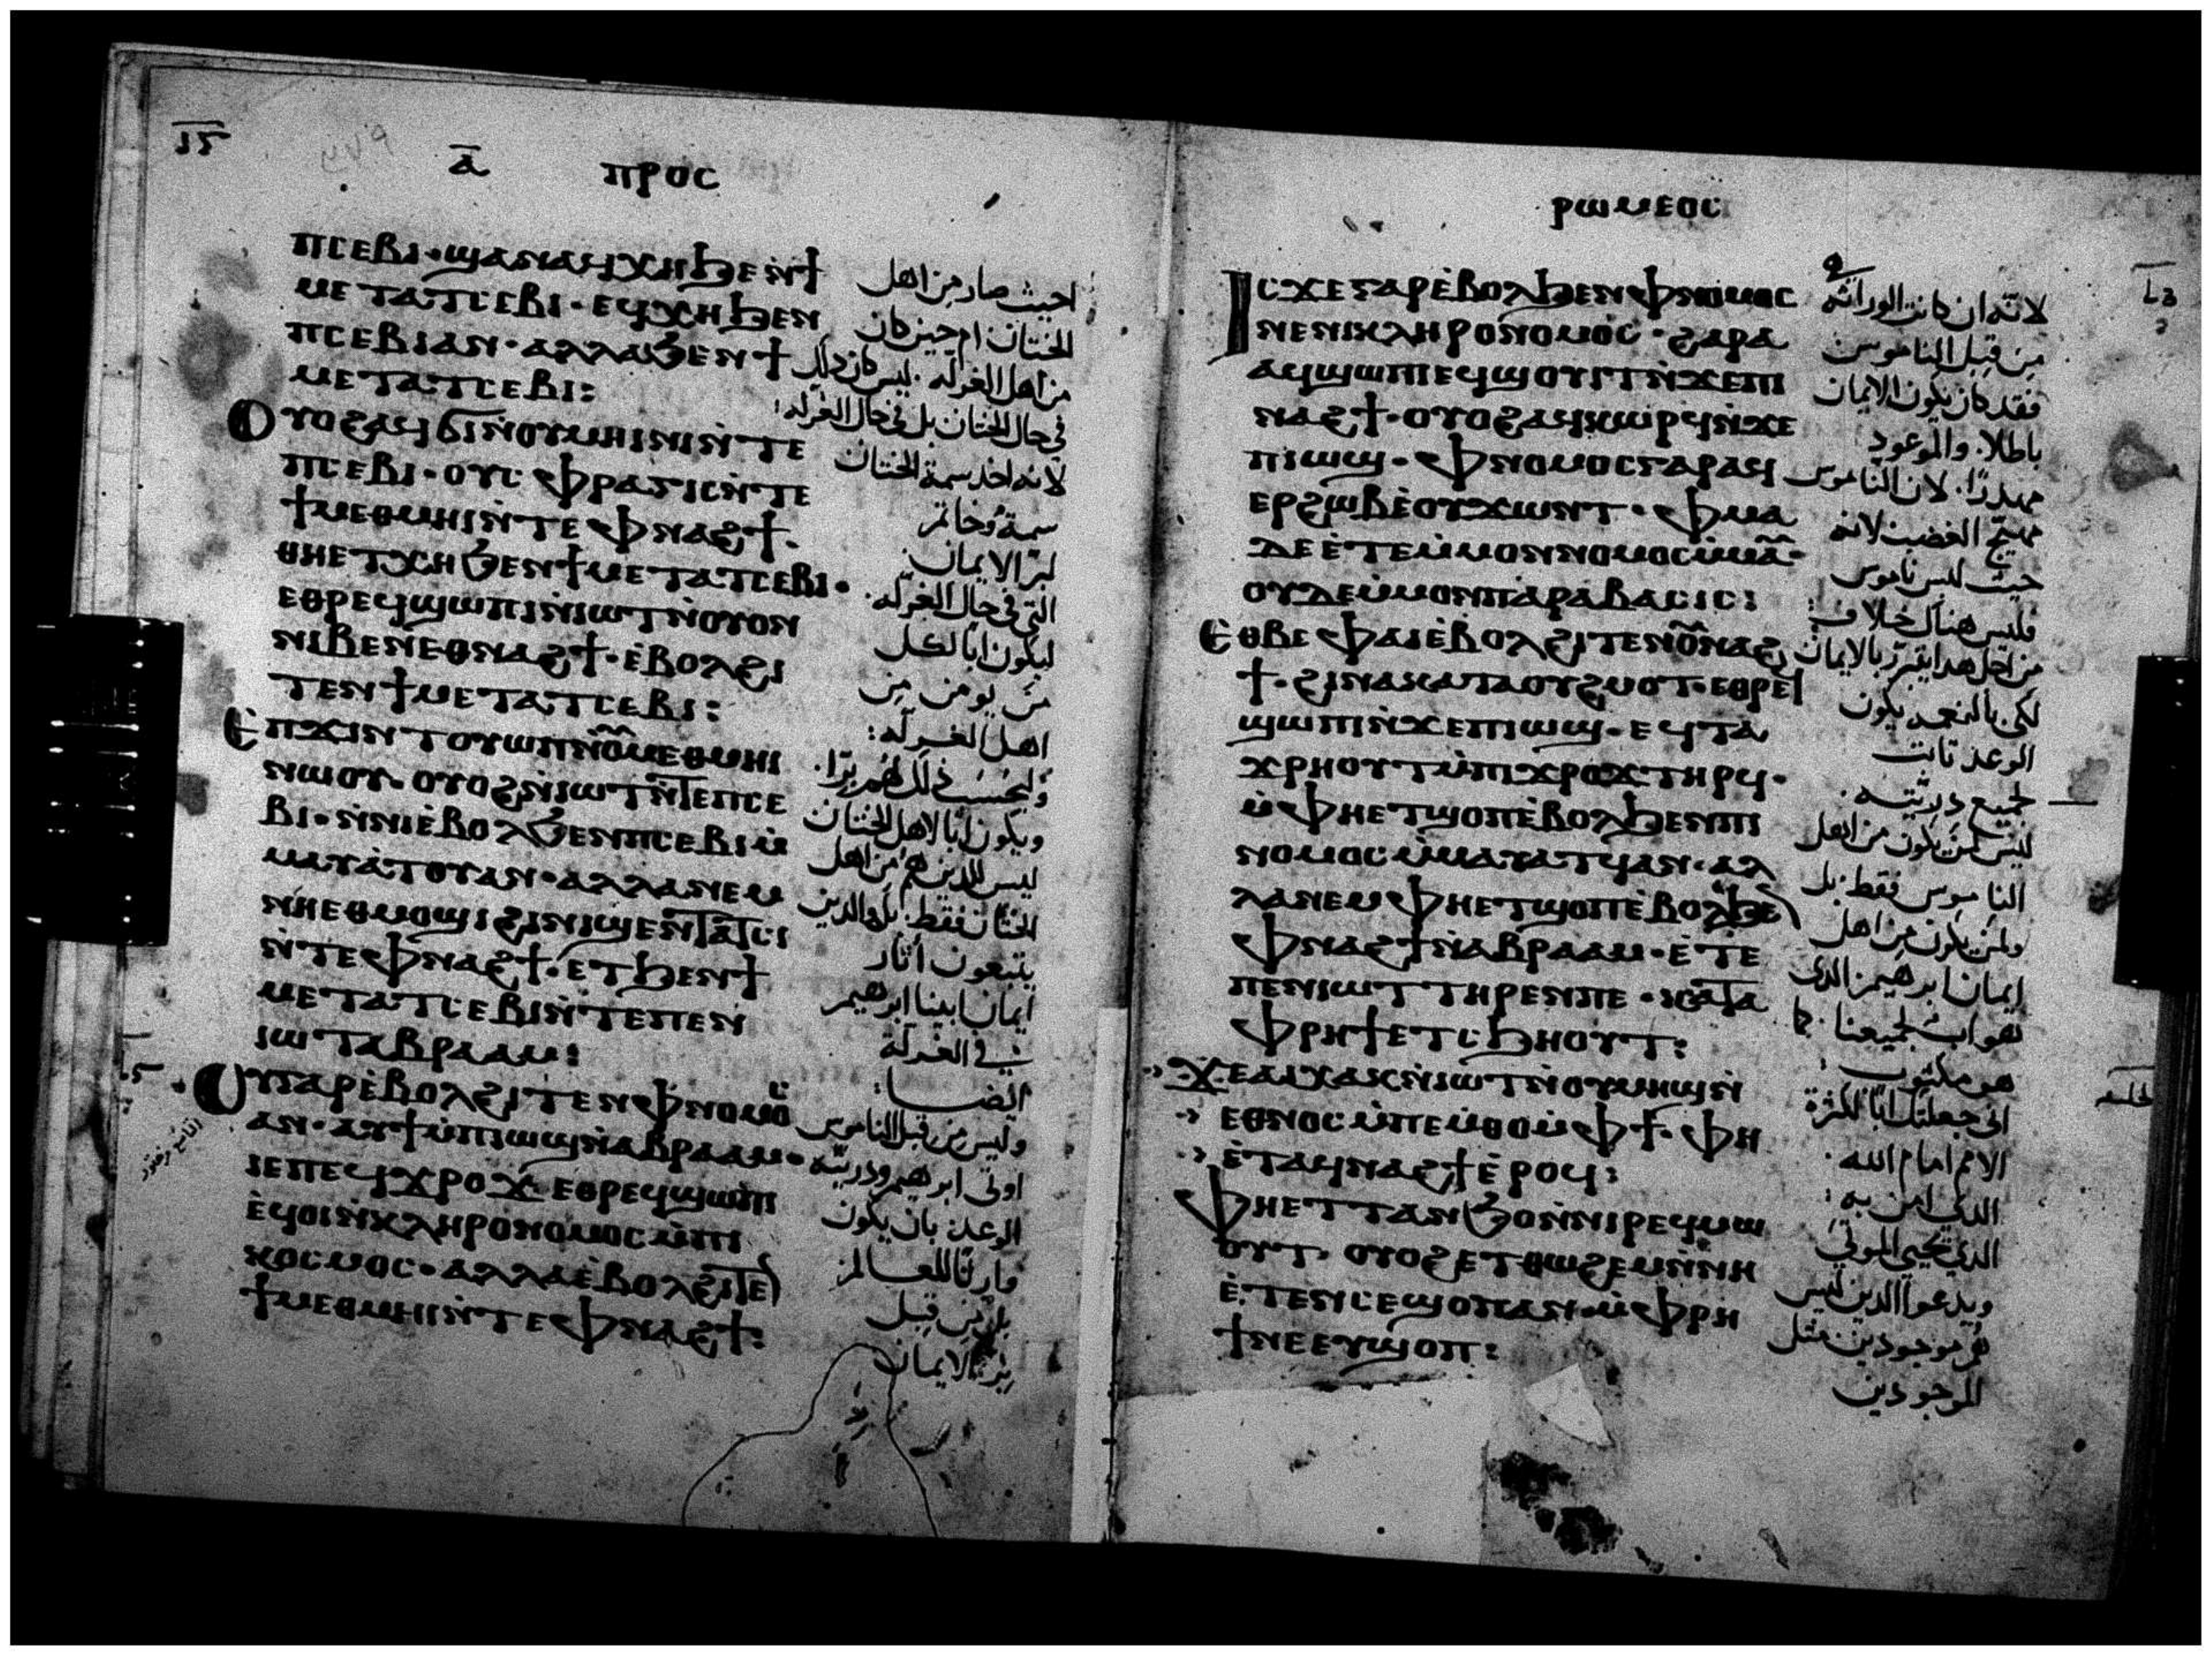 ⲁ̅ ⲡⲣⲟⲥ
ⲡⲥⲉⲃⲓ·ϣⲁⲛⲁϥⲭⲏϧⲉⲛϯ
ⲙⲉⲧⲁⲧⲥⲉⲃⲓ·ⲉϥⲭⲏϧⲉⲛ
ⲡⲥⲉⲃⲓⲁⲛ·ⲁⲗⲗⲁϧⲉⲛϯ
ⲙⲉⲧⲁⲧⲥⲉⲃⲓ:
ⲟⲩⲟϩⲁϥϭⲓⲛ̀ⲟⲩⲙⲏⲓⲛⲓⲛ̀ⲧⲉ
ⲡⲥⲉⲃⲓ·ⲟⲩⲥⲫⲣⲁⲅⲓⲥⲛ̀ⲧⲉ
ϯⲙⲉⲑⲙⲏⲓⲛ̀ⲧⲉⲫⲛⲁϩϯ·
ⲑⲏⲉⲧⲭⲏϧⲉⲛϯⲙⲉⲧⲁⲧⲥⲉⲃⲓ·
ⲉⲑⲣⲉϥϣⲱⲡⲓⲛ̀ⲓⲱⲧⲛ̀ⲟⲩⲟⲛ
ⲛⲓⲃⲉⲛⲉⲑⲛⲁϩϯ·ⲉ̀ⲃⲟⲗϩⲓ
ⲧⲉⲛϯⲙⲉⲧⲁⲧⲥⲉⲃⲓ:
ⲉ̀ⲡϫⲓⲛⲧⲟⲩⲱⲡⲛ̀ⲟ̅ⲙⲉⲑⲙⲏⲓ
ⲛⲱⲟⲩ·ⲟⲩⲟϩⲛ̀ⲓⲱⲧⲛ̀ⲧⲉⲡⲥⲉ
ⲃⲓ·ⲛ̀ⲛⲓⲉ̀ⲃⲟⲗϧⲉⲛⲡⲥⲉⲃⲓⲙ̀
ⲙⲁⲩⲁ̀ⲧⲟⲩⲁⲛ·ⲁⲗⲗⲁⲛⲉⲙ
ⲛⲏⲉⲑⲙⲟϣⲓϩⲓⲛⲓϣⲉⲛⲧⲁⲧⲥⲓ
ⲛ̀ⲧⲉⲫⲛⲁϩϯ·ⲉⲧϧⲉⲛϯ
ⲙⲉⲧⲁⲧⲥⲉⲃⲓⲛ̀ⲧⲉⲡⲉⲛ
ⲓⲱⲧⲁⲃⲣⲁⲁⲙ:
ⲟⲩⲅⲁⲣⲉ̀ⲃⲟⲗϩⲓⲧⲉⲛⲫⲛⲟⲙⲟ̅
ⲁⲛ·ⲁⲩϯⲙ̀ⲡⲓⲱϣⲛ̀ⲁⲃⲣⲁⲁⲙ·
ⲓⲉⲡⲉϥϫⲣⲟϫ·ⲉⲑⲣⲉϥϣⲱⲡⲓ
ⲉ̀ϥⲟⲓⲛ̀ⲕⲗⲏⲣⲟⲛⲟⲙⲟⲥⲙ̀ⲡⲓ
ⲕⲟⲥⲙⲟⲥ·ⲁⲗⲗⲁⲉ̀ⲃⲟⲗϩⲓⲧⲉ
ϯⲙⲉⲑⲙⲏⲓⲛ̀ⲧⲉⲫⲛⲁϩϯ:
احيث صار من اهل
الختان ام حين كان
من اهل الغرله. ليس كان ذلك
في حال الختان بل في حال الغرله:
لانه اخذ سمة الختان
سمة وخاتم
لبر الايمان
التي في حال الغرله.
ليكون ابا لكل
من يومن من
اهل الغرله:
وليحسب ذلك لهم برا.
ويكون ابا لاهل الختان
ليس للذين هم من اهل
الختان فقط بل والذين
يتبعون اثار
ايمان ابينا ابرهيم
في الغرلة
ايضا:
وليس من قبل الناموس
اوتى ابرهيم وذريته
الوعد بان يكون
وارثا للعالم
بل من قبل
بر الايمان
ⲣⲱⲙⲉⲟⲥ
ⲓⲥϫⲉⲅⲁⲣⲉ̀ⲃⲟⲗϧⲉⲛⲫⲛⲟⲙⲟⲥ
ⲛⲉⲛⲓⲕⲗⲏⲣⲟⲛⲟⲙⲟⲥ·ϩⲁⲣⲁ
ⲁϥϣⲱⲡⲉϥϣⲟⲩⲓⲧⲛ̀ϫⲉⲡⲓ
ⲛⲁϩϯ·ⲟⲩⲟϩⲁϥⲕⲱⲣϥⲛ̀ϫⲉ
ⲡⲓⲱϣ·ⲫⲛⲟⲙⲟⲥⲅⲁⲣⲁϥ
ⲉⲣϩⲱⲃⲉ̀ⲟⲩϫⲱⲛⲧ·ⲫⲙⲁ
ⲇⲉⲉ̀ⲧⲉⲙ̀ⲙⲟⲛⲛⲟⲙⲟⲥⲙ̀ⲙⲁ̅·
ⲟⲩⲇⲉⲙ̀ⲙⲟⲛⲡⲁⲣⲁⲃⲁⲥⲓⲥ:
ⲉ̀ⲑⲃⲉⲫⲁⲓⲉ̀ⲃⲟⲗϩⲓⲧⲉⲛⲟ̅ⲛⲁϩ
ϯ·ϩⲓⲛⲁⲕⲁⲧⲁⲟⲩϩⲙⲟⲧ·ⲉⲑⲣⲉ
ϣⲱⲡⲓⲛ̀ϫⲉⲡⲓⲱϣ·ⲉϥⲧⲁ
ϫⲣⲏⲟⲩⲧⲙ̀ⲡⲓϫⲣⲟϫⲧⲏⲣϥ·
ⲙ̀ⲫⲏⲉⲧϣⲟⲡⲉ̀ⲃⲟⲗϧⲉⲛⲡⲓ
ⲛⲟⲙⲟⲥⲙ̀ⲙⲁⲩⲁⲧϥⲁⲛ·ⲁⲗ
ⲗⲁⲛⲉⲙⲫⲏⲉⲧϣⲟⲡⲉ̀ⲃⲟⲗϧⲉ
ⲫⲛⲁϩϯⲛ̀ⲁⲃⲣⲁⲁⲙ·ⲉ̀ⲧⲉ
ⲡⲉⲛⲓⲱⲧⲧⲏⲣⲉⲛⲡⲉ·ⲕⲁⲧⲁ
ⲫⲣⲏϯⲉⲧⲥϧⲏⲟⲩⲧ:
ϫⲉⲁⲓⲭⲁⲕⲛ̀ⲓⲱⲧⲛ̀ⲟⲩⲙⲏϣⲛ̀
ⲉⲑⲛⲟⲥⲙ̀ⲡⲉⲙ̀ⲑⲟⲙ̀ⲫϯ·ⲫⲏ
ⲉ̀ⲧⲁϥⲛⲁϩϯⲉ̀ⲣⲟϥ:
ⲫⲏⲉⲧⲧⲁⲛϧⲟⲛ̀ⲛⲓⲣⲉϥⲙⲱ
ⲟⲩⲧ·ⲟⲩⲟϩⲉⲧⲑⲱϩⲉⲙⲛ̀ⲛⲏ
ⲉ̀ⲧⲉⲛⲥⲉϣⲟⲡⲁⲛ·ⲙ̀ⲫⲣⲏ
ϯⲛⲉⲉⲩϣⲟⲡ:
لانه ان كانت الوراثه
من قبل الناموس
فقد كان يكون الايمان
باطلا. والموعود
مهدرا. لان الناموس
مهيج الغضب لانه
حيث ليس ناموس
فليس هناك خلاف:
من اجل هذا يتبرر بالايمان
لكي بالنعمه يكون
الوعد ثابت
لجميع ذريته.
ليس لمن يكون من اهل
الناموس فقط بل
ولمن يكون من اهل
ايمان ابرهيم الذي
هو اب لجميعنا. كما
هو مكتوب:
اني جعلتك ابا لكثرة
الامم امام الله.
الذي امن به:
الذي يحيي الموتى
ويدعوا الذين ليس
هم موجودين مثل
الموجودين